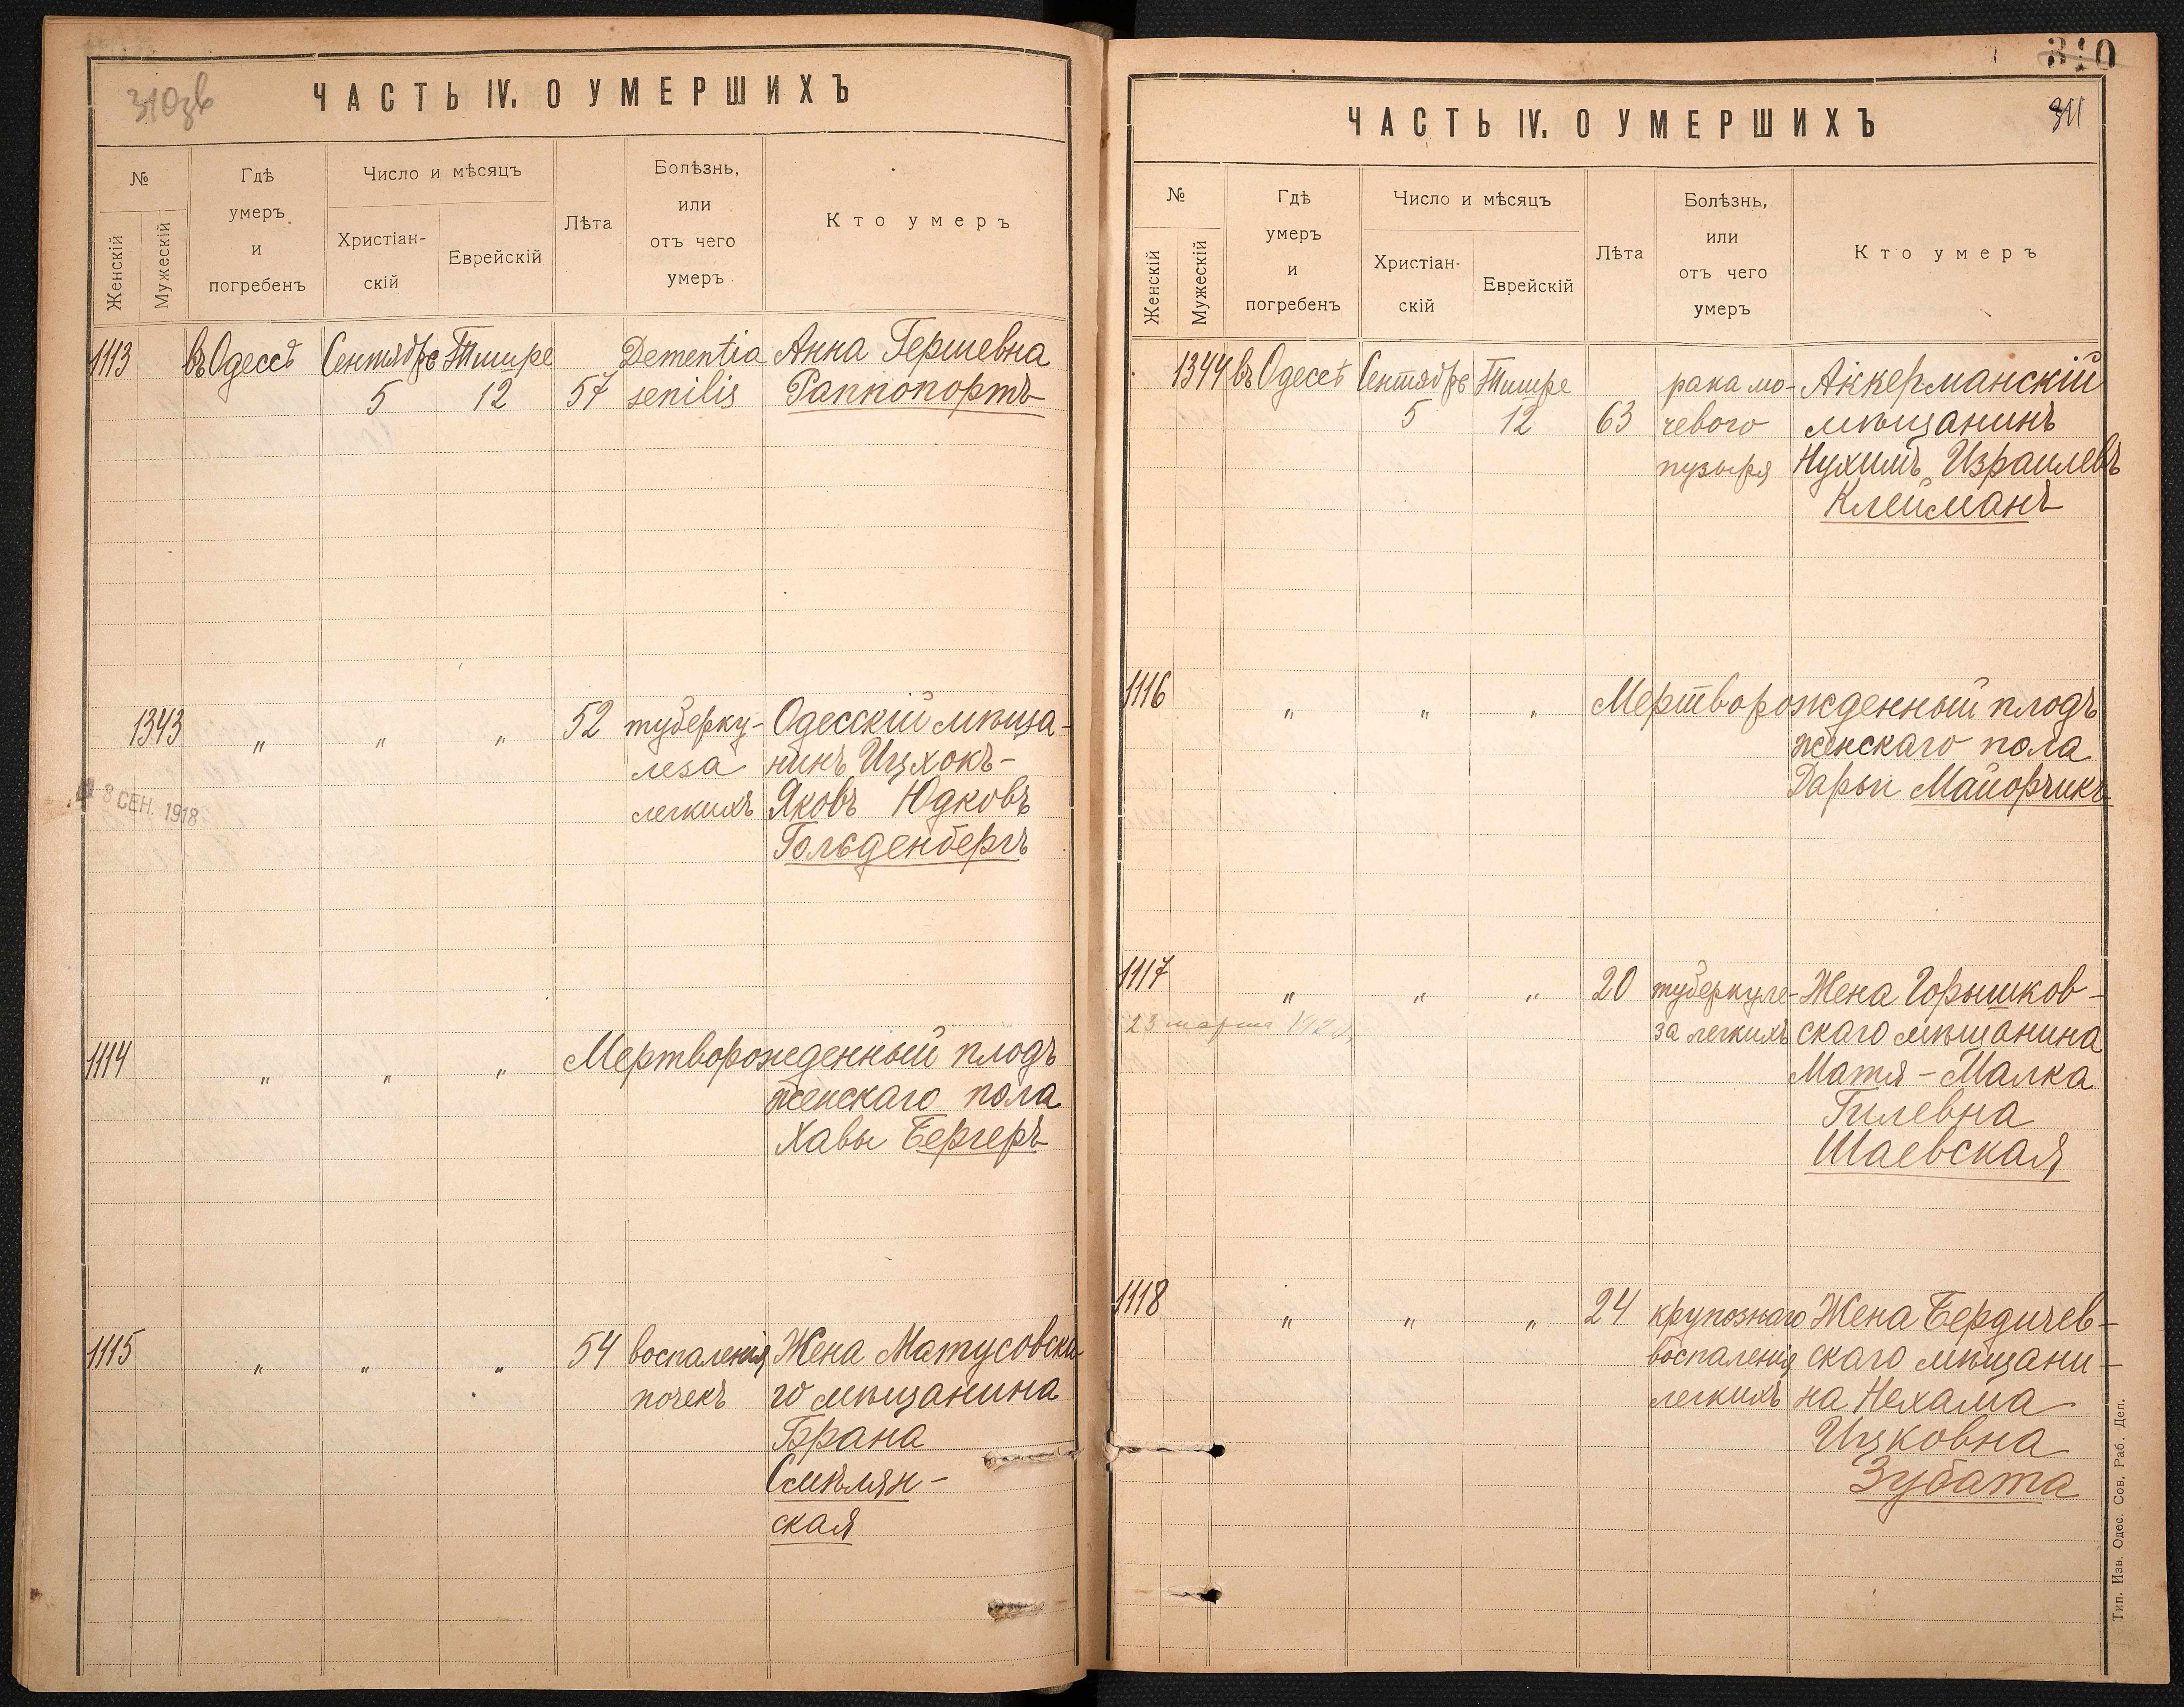 310зв
ЧАСТЬ IV. О УМЕРШИХЪ
№
Женскій
Мужескій
Гдѣ
умеръ
и
погребенъ
Число и мѣсяцъ
Христіан-
скій
Еврейскій
Лѣта
Болѣзнь,
или
отъ чего
умеръ
Кто умеръ
1113 въ Одессѣ Сентябрь Тишре Dementia Анна Гершевна
5 12 57 senilis Раппопортъ
1343 " " " 52 туберку- Одесскій мѣща-
леза нинъ Ицхокъ-
легкихъ Яковъ Юдковъ
Гольденбергъ
8 СЕН. 1918
1114 " " " Мертворожденный плодъ
женскаго пола
Хавы Бергеръ
1115 " " " 54 воспаленія Жена Матусовска
почекъ го мѣщанина
Брана
Смѣлян-
ская
310
311
ЧАСТЬ IV. О УМЕРШИХЪ
№
Женскій
Мужескій
Гдѣ
умеръ
и
погребенъ
Число и мѣсяцъ
Христіан-
скій
Еврейскій
Лѣта
Болѣзнь,
или
отъ чего
умеръ
Кто умеръ
1344 въ Одессѣ Сентябрь Тишре рака мо- Аккерманскій
5 12 63 чевого мѣщанинъ
пузыря Нухимъ Израилевъ
Клейманъ
1116 " " " Мертворожденный плодъ
женскаго пола
Дарьи Майорчикъ
1117 " " " 20 туберкуле- Жена Горышков-
23 марта
за легкихъ скаго мѣщанина
Матя-Малка
Гилевна
Шаевская
1118 " " " 24 крупознаго Жена Бердичев-
воспаленія скаго мѣщани-
легкихъ на Нехама
Ицковна
Зубата
Тип. Изв. Одес. Сов. Раб. Деп.